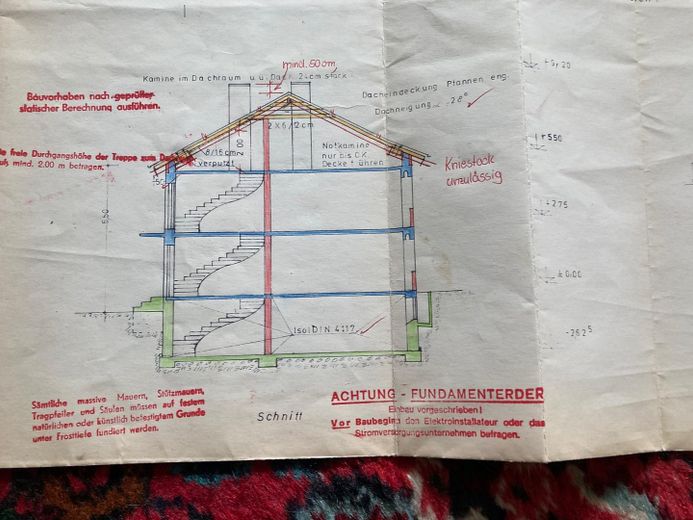 mind. 50 cm
Kamine im Dachraum u.ü. Dach 24cm stark
Bauvorhaben nach geprüfter
statischer Berechnung ausführen.
Dacheindeckung Pfannen, eng.
Dachneigung 28°
+ 9,20
freie Durchgangshöhe der Treppe zum
muß mind. 2.00 m betragen.
8/16cm
verputzt
2.00
2x6/12cm
Notkamine
nur bis O.K.
Decke führen
Kniestock
unzulässig
+ 5.50
+ 2.75
± 0.00
- 2.62⁵
5,50
Isol DIN 4117
Sämtliche massive Mauern, Stützmauern,
Tragpfeiler und Säulen müssen auf festem
natürlichen oder künstlich befestigtem Grunde
unter Frosttiefe fundiert werden.
Schnitt
ACHTUNG - FUNDAMENTERDER
Einbau vorgeschrieben!
Vor Baubeginn den Elektroinstallateur oder das
Stromversorgungsunternehmen befragen.